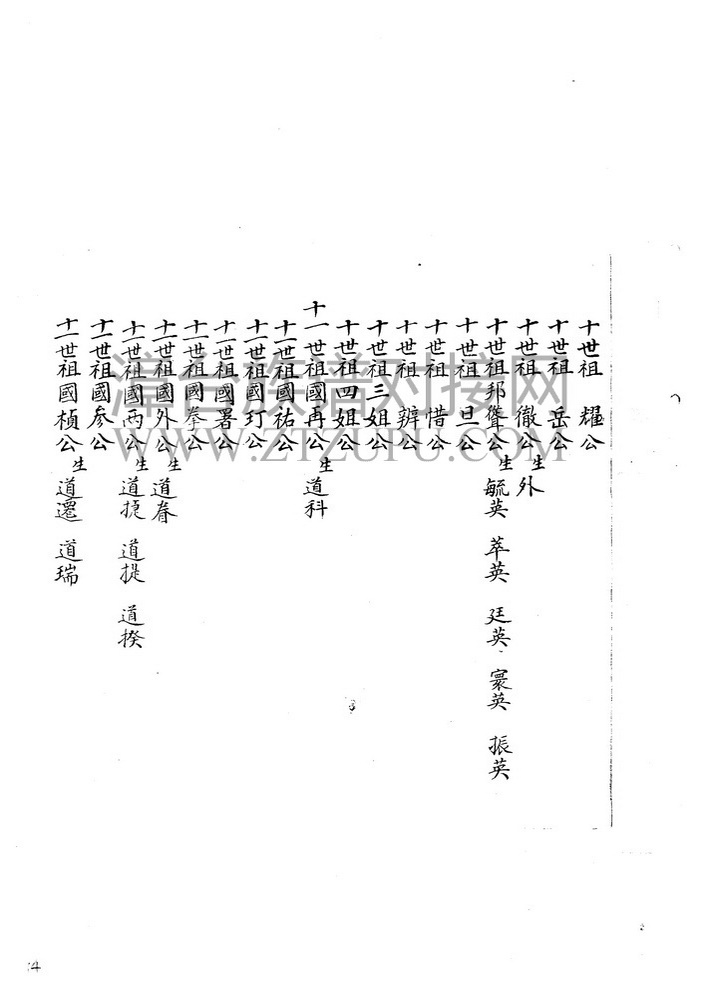 十世祖 耀公
十世祖 岳公
十世祖 徹公 生 外
十世祖邦聳公 生 毓英 萃英 廷英 寰英 振英
十世祖 旦公
十世祖 惜公
十世祖 辦公
十世祖三姐公
十世祖四姐公
十一世祖國再公 生 道科
十一世祖國祐公
十一世祖國玎公
十一世祖國署公
十一世祖國拳公
十一世祖國外公 生 道眷
十一世祖國両公 生 道捷 道提 道揆
十一世祖國参公
十一世祖國楨公 生 道還 道瑞
漳台族谱对接网
WWW.ZTZUPU.COM
14